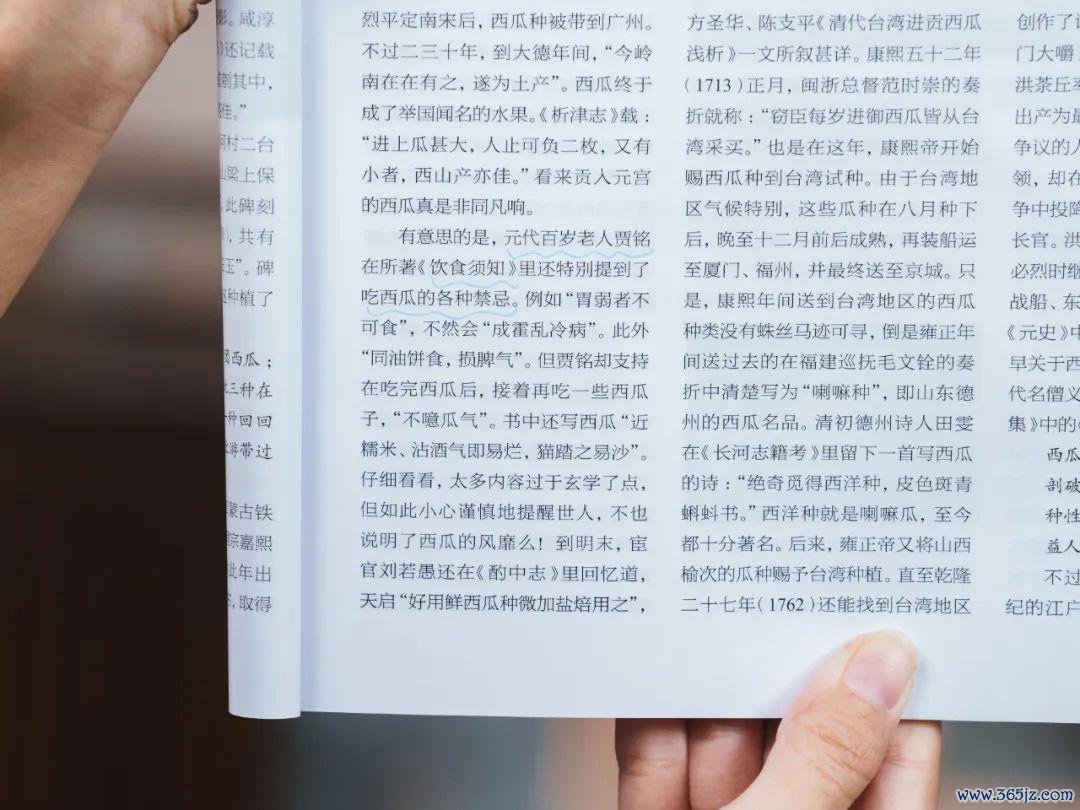 影。咸淳
还记载
其中，
佳。”
村二台
梁上保
此碑刻
，共有
玉”。碑
种植了
西瓜；
三种在
种回回
游带过
蒙古铁
宗嘉熙
此年出
，取得
烈平定南宋后，西瓜种被带到广州。
不过二三十年，到大德年间，“今岭
南在在有之，遂为土产”。西瓜终于
成了举国闻名的水果。《析津志》载：
“进上瓜甚大，人止可负二枚，又有
小者，西山产亦佳。”看来贡入元宫
的西瓜真是非同凡响。
有意思的是，元代百岁老人贾铭
在所著《饮食须知》里还特别提到了
吃西瓜的各种禁忌。例如“胃弱者不
可食”，不然会“成霍乱冷病”。此外
“同油饼食，损脾气”。但贾铭却支持
在吃完西瓜后，接着再吃一些西瓜
子，“不噫瓜气”。书中还写西瓜“近
糯米、沾酒气即易烂，猫踏之易沙”。
仔细看看，太多内容过于玄学了点，
但如此小心谨慎地提醒世人，不也
说明了西瓜的风靡么！到明末，宦
官刘若愚还在《酌中志》里回忆道，
天启“好用鲜西瓜种微加盐焙用之”，
方圣华、陈支平《清代台湾进贡西瓜
浅析》一文所叙甚详。康熙五十二年
（1713）正月，闽浙总督范时崇的奏
折就称：“窃臣每岁进御西瓜皆从台
湾采买。”也是在这年，康熙帝开始
赐西瓜种到台湾试种。由于台湾地
区气候特别，这些瓜种在八月种下
后，晚至十二月前后成熟，再装船运
至厦门、福州，并最终送至京城。只
是，康熙年间送到台湾地区的西瓜
种类没有蛛丝马迹可寻，倒是雍正年
间送过去的在福建巡抚毛文铨的奏
折中清楚写为“喇嘛种”，即山东德
州的西瓜名品。清初德州诗人田雯
在《长河志籍考》里留下一首写西瓜
的诗：“绝奇觅得西洋种，皮色斑青
蝌蚪书。”西洋种就是喇嘛瓜，至今
都十分著名。后来，雍正帝又将山西
榆次的瓜种赐予台湾种植。直至乾隆
二十七年（1762）还能找到台湾地区
创作了
门大嚼
洪茶丘率
出产为最
争议的人
领，却在
争中投降
长官。洪
必烈时继
战船、东
《元史》中
早关于西
代名僧义
集》中的
西瓜
剖破
种性
益人
不过
纪的江户
www.365jz.com